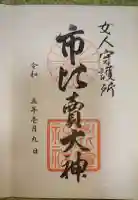 女人守護所
市比賣大神
令和
五年壱月九日